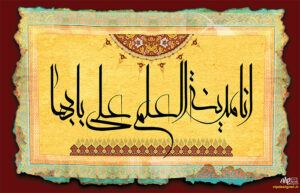 انا مدینة العلم علی بابها